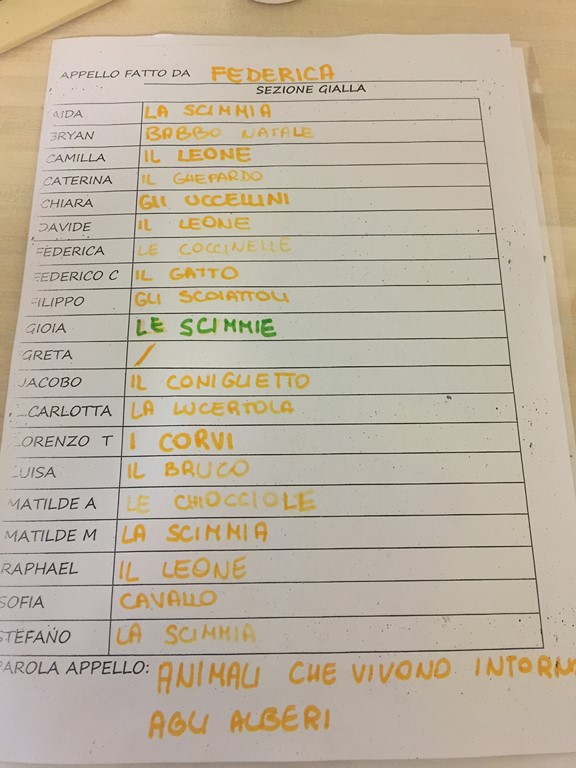 APPELLO FATTO DA FEDERICA
SEZIONE GIALLA
AIDA LA SCIMMIA
BRYAN BABBO NATALE
CAMILLA IL LEONE
CATERINA IL GHEPARDO
CHIARA GLI UCCELLINI
DAVIDE IL LEONE
FEDERICA LE COCCINELLE
FEDERICO C IL GATTO
FILIPPO GLI SCOIATTOLI
GIOIA LE SCIMMIE
GRETA /
JACOBO IL CONIGLIETTO
CARLOTTA LA LUCERTOLA
LORENZO T I CORVI
LUISA IL BRUCO
MATILDE A LE CHIOCCIOLE
MATILDE M LA SCIMMIA
RAPHAEL IL LEONE
SOFIA CAVALLO
STEFANO LA SCIMMIA
PAROLA APPELLO: ANIMALI CHE VIVONO INTORNO
AGLI ALBERI